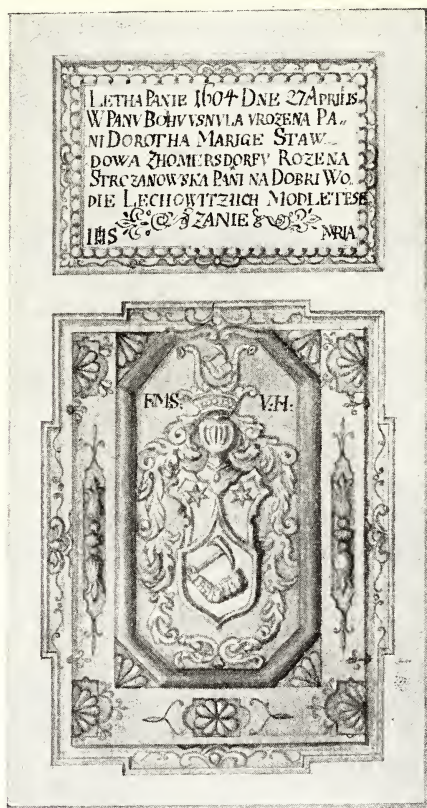 LETHA PANIE 1604 DNE 27 APRILIS
W PANV BOHV VSNVLA VROZENA PA„
NI DOROTHA MARIGE STAW„
DOWA ZHOMERSDORFV ROZENA
STRCZANOWSKA PANI NA DOBRI WO„
DIE LECHOWITZIICH MODLETESE
ZANIE
IHS MRIA
F.M.S. V.H.